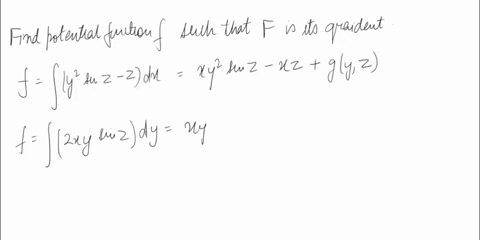 Find potential function f such that F is its graident.
f = ∫(y² sin z - z) dx = xy² sin z - xz + g(y, z)
f = ∫(2xy sin z) dy = xy